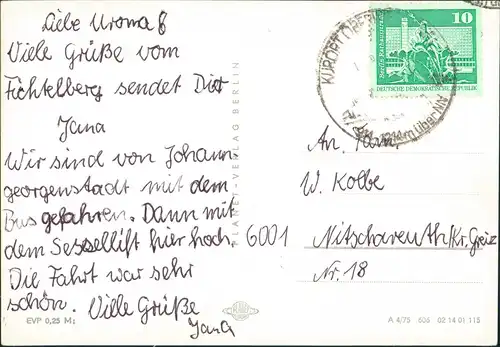 Liebe Uroma B
Viele Grüße vom
Fichtelberg sendet Dir
Jana
Wir sind von Johann
georgenstadt mit dem
Bus gefahren. Dann mit
dem Sessellift hier hoch.
Die Fahrt war sehr
schön. Viele Grüße
Jana
EVP 0,25 M
PLANET-VERLAG BERLIN
KURORT OBER
1214m über NN
10
Berlin Rathausstraße
DEUTSCHE DEMOKRATISCHE REPUBLIK
An Fam.
W. Kolbe
6001 Nitschareuth/Kr. Greiz
Nr. 18
A 4/75 606 02 14 01 115